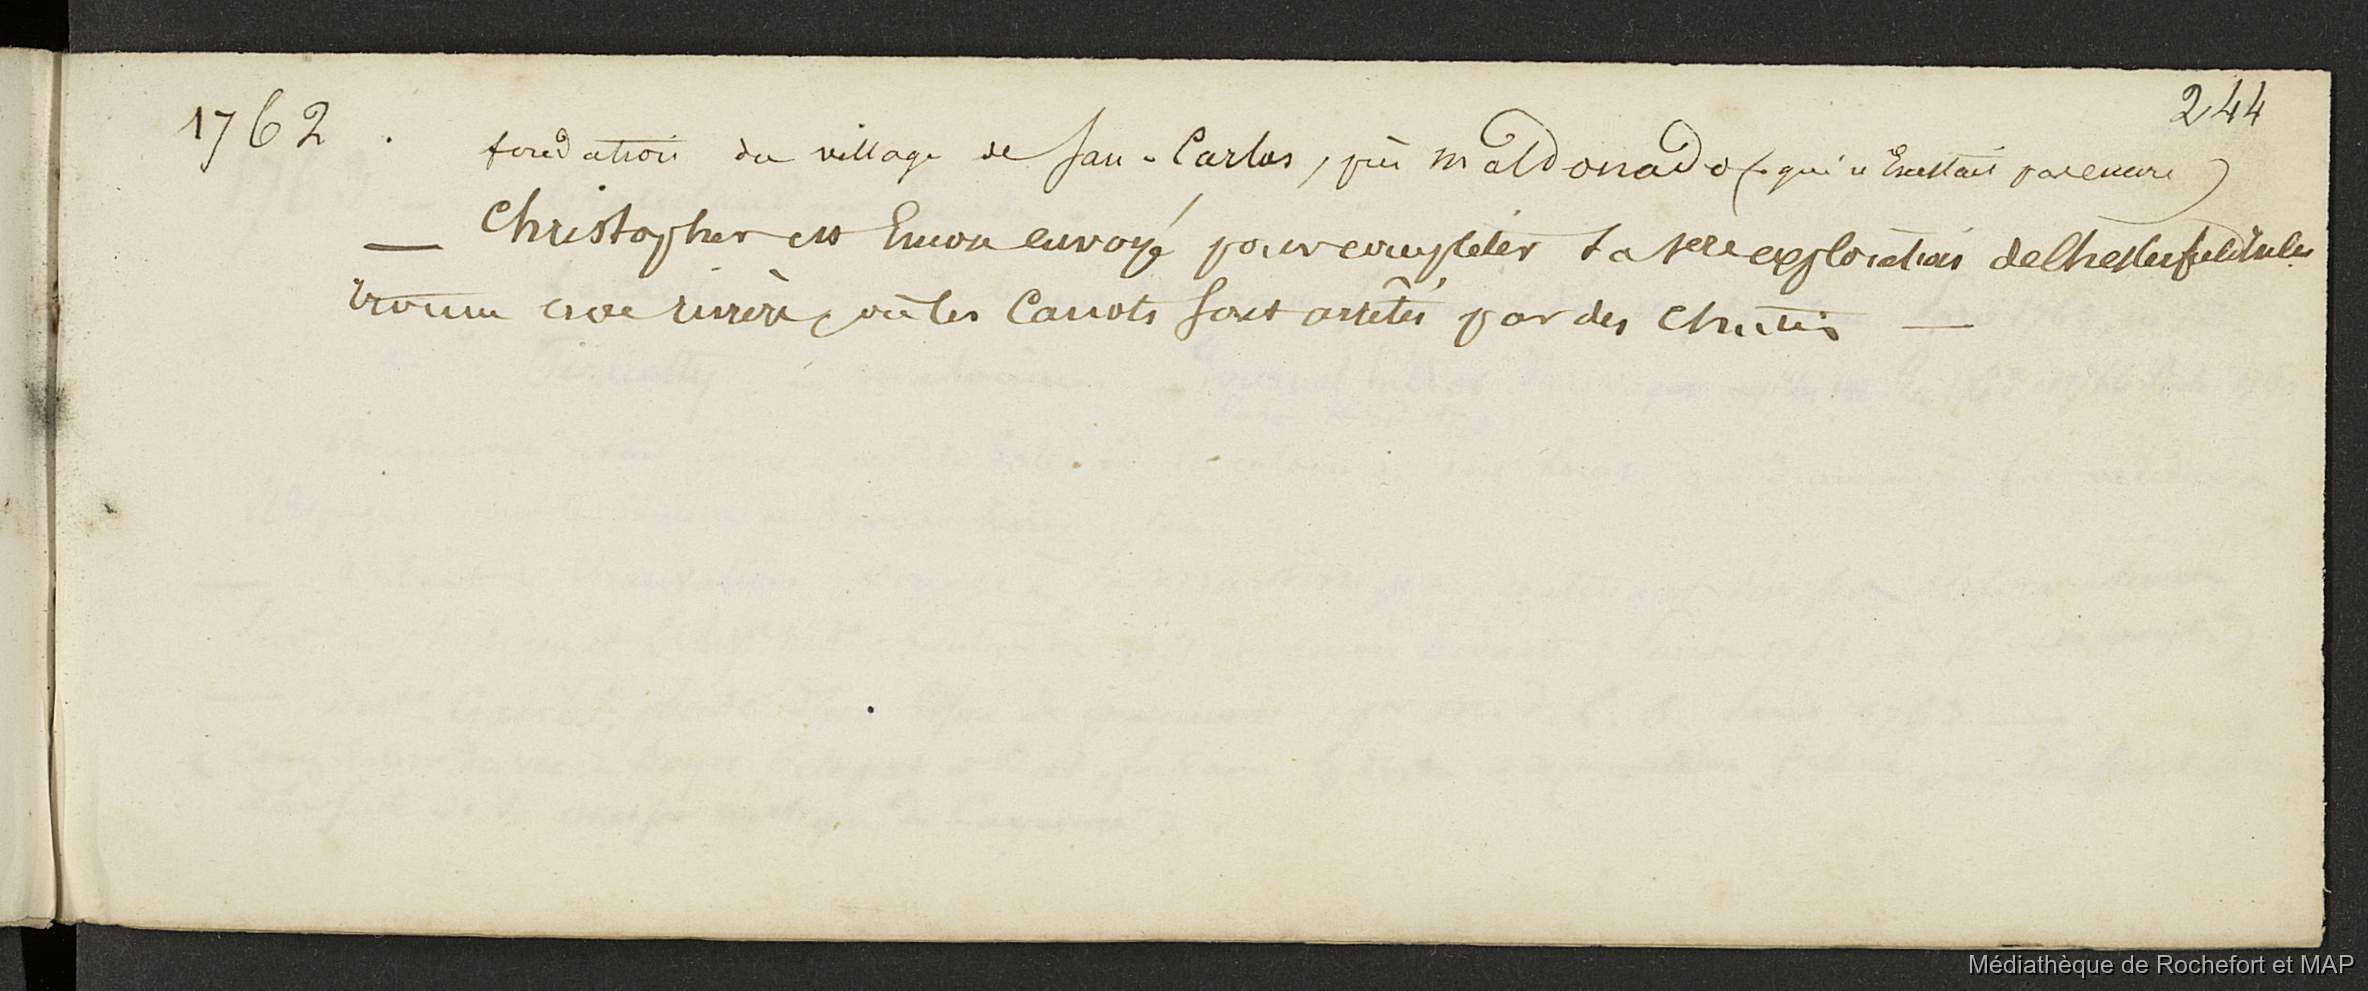 1762 . fondation du village de San-Carlos, près Maldonado (qui n'existait pas encore)
244
— Christopher est encore envoyé pour compléter la 1ere exploration de Chesterfield Inlet
trouva une rivière, où les canots sont arretés par des chutes —
Médiathèque de Rochefort et MAP